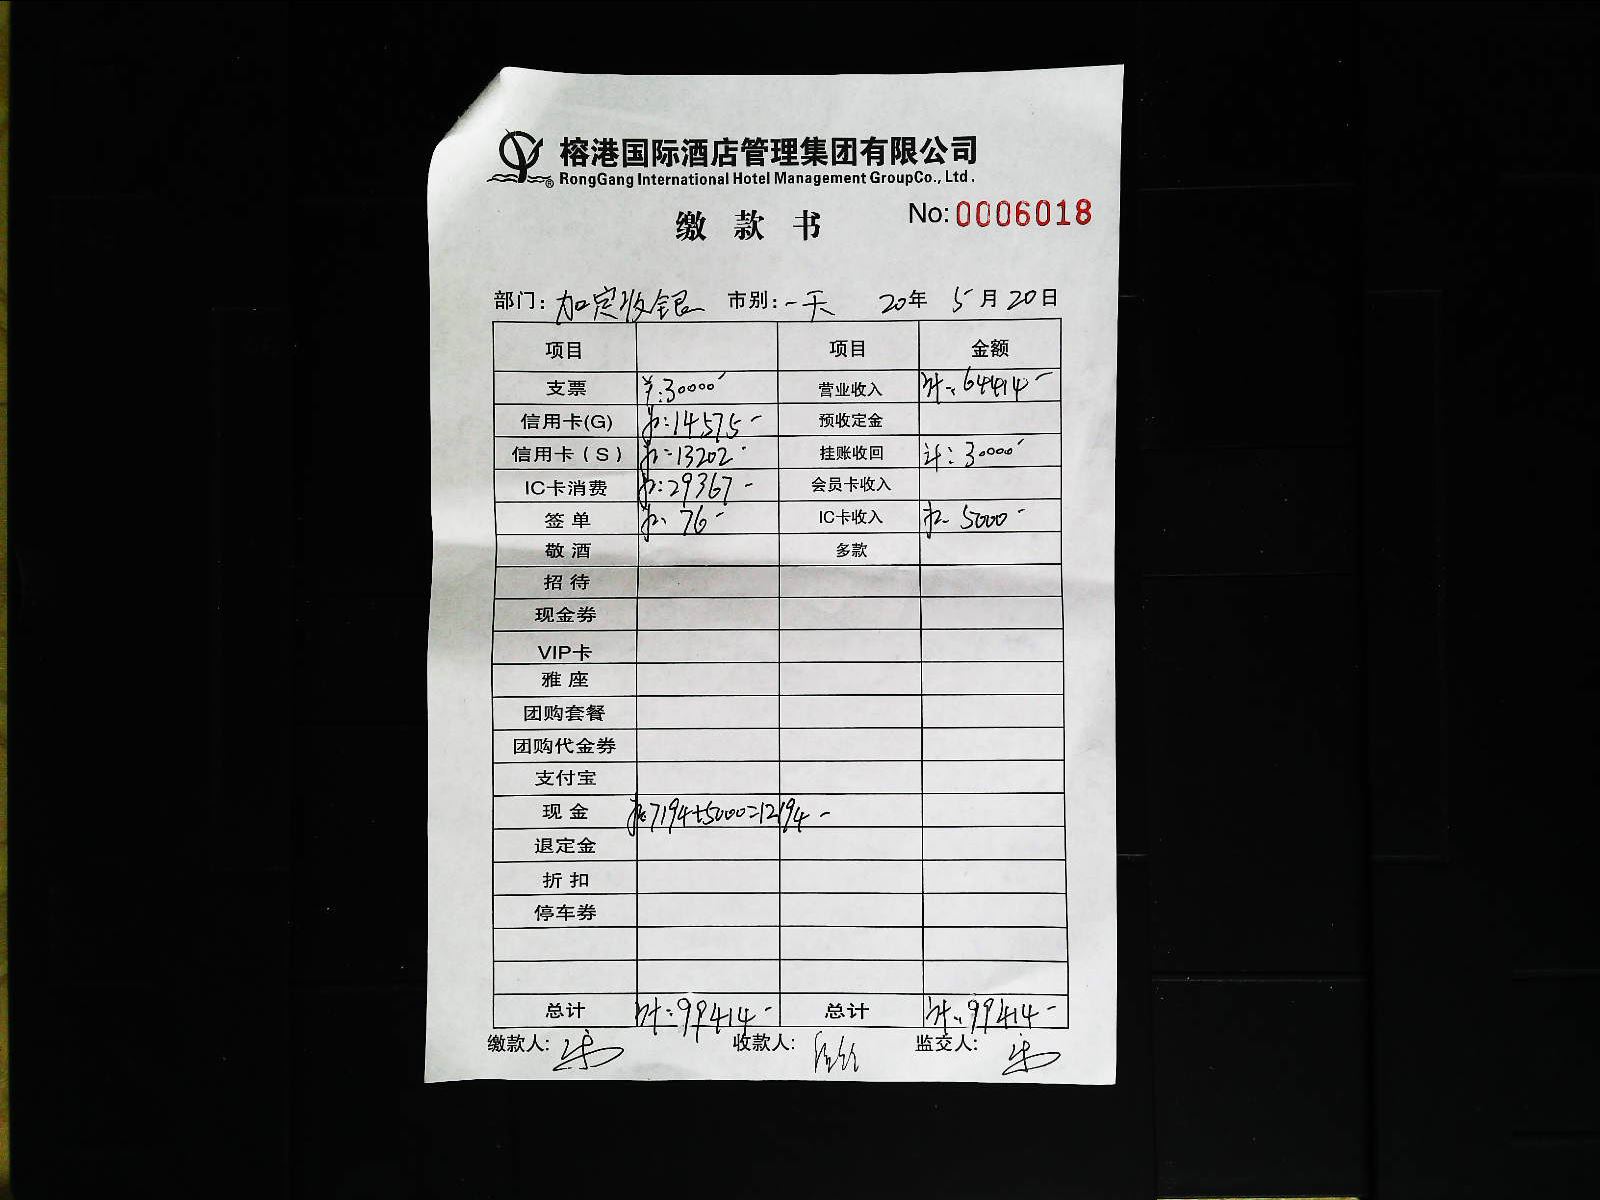 榕港国际酒店管理集团有限公司
RongGang International Hotel Management GroupCo., Ltd.
缴 款 书
No: 0006018
部门: 加定收银 市别: 一天 20年 5月20日
项目 项目 金额
支票 ¥:30000- 营业收入 计:64414-
信用卡(G) 计:14575- 预收定金
信用卡(S) 计:13202- 挂账收回 计:30000-
IC卡消费 计:29367- 会员卡收入
签 单 计:76- IC卡收入 计:5000-
敬 酒 多款
招 待
现金券
VIP卡
雅 座
团购套餐
团购代金券
支付宝
现 金 计:7194+5000=12194-
退定金
折 扣
停车券
总计 计:99414- 总计 计:99414-
缴款人: 收款人: 监交人: